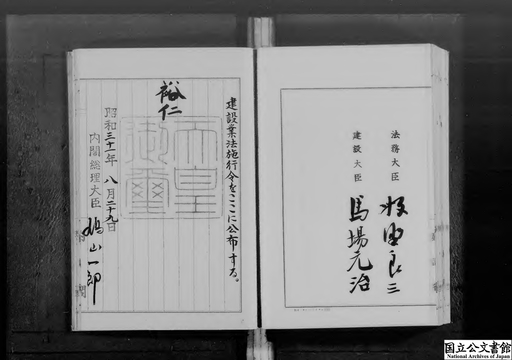 建設業法施行令をここに公布する。
裕仁
天皇御璽
昭和三十一年八月二十九日
内閣総理大臣 鳩山一郎
法務大臣 牧野良三
建設大臣 馬場元治
国立公文書館
National Archives of Japan